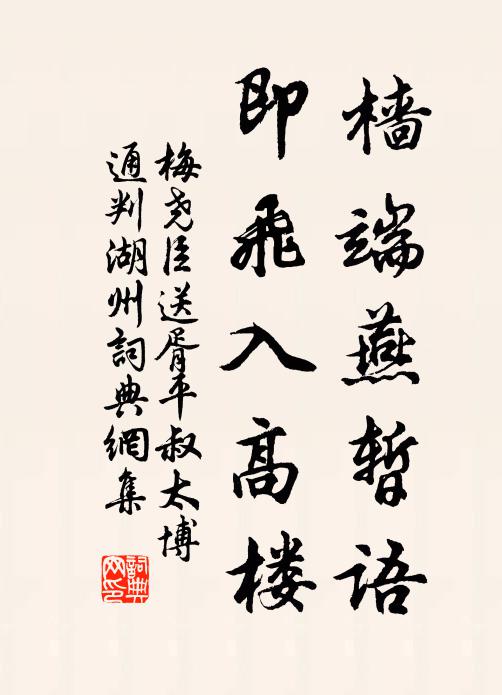 樯端燕暂语
即飛入高楼
梅尧臣送胥平叔太博
通判湖州詞典網集
詞典网印